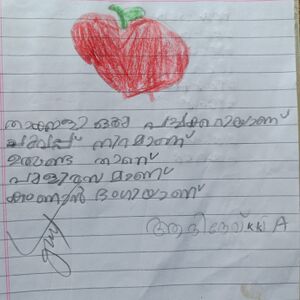 തക്കാളി ഒരു പച്ചക്കറിയാണ്
ചുവപ്പ് നിറമാണ്
ഉരുണ്ട താണ്
പുളിരസമാണ്
കാണാൻ ഭംഗിയാണ്
A